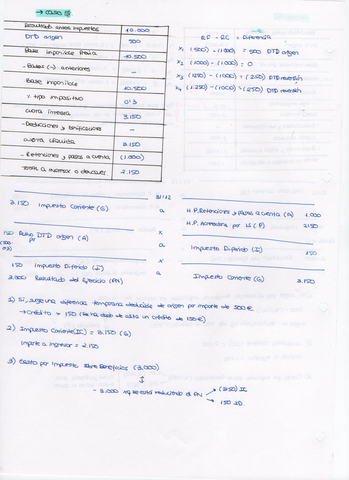 → CASO
Resultado antes impuestos 10.000
DTD origen 500
Base imponible previa 10.500
- Bases (-) anteriores —
Base imponible 10.500
x tipo impositivo 0'3
Cuota íntegra 3.150
- Deducciones y bonificaciones —
Cuota líquida 3.150
- Retenciones y pagos a cuenta (1.000)
Total a ingresar o devolver 2.150
RF - RC = Diferencia
X1 (500) - (1.000) = 500 DTD origen
X2 (1.000) - (1.000) = 0
X3 (1250) - (1.000) = (250) DTD reversión
X4 (1.250) - (1000) = (250) DTD reversión
31/12
3.150 Impuesto Corriente (G)
a H.P. Retenciones y pagos a cuenta (A) 1.000
H.P. Acreedora por IS (P) 2150
x
150 Activo por DTD origen (A)
a Impuesto Diferido (I) 150
x
150 Impuesto Diferido (I)
3.000 Resultado del Ejercicio (PN)
a Impuesto Corriente (G) 3.150
1) Sí, surge una diferencia temporaria deducible de origen por importe de 500€
→ Crédito + 150 de un crédito de 150€)
2) Impuesto Corriente (IC) = 3.150 (G)
Importe a ingresar = 2.150
3) Gasto por Impuesto sobre Beneficios (3.000)
- 3.000 reduciendo el PN
(3150) IC
150 ID